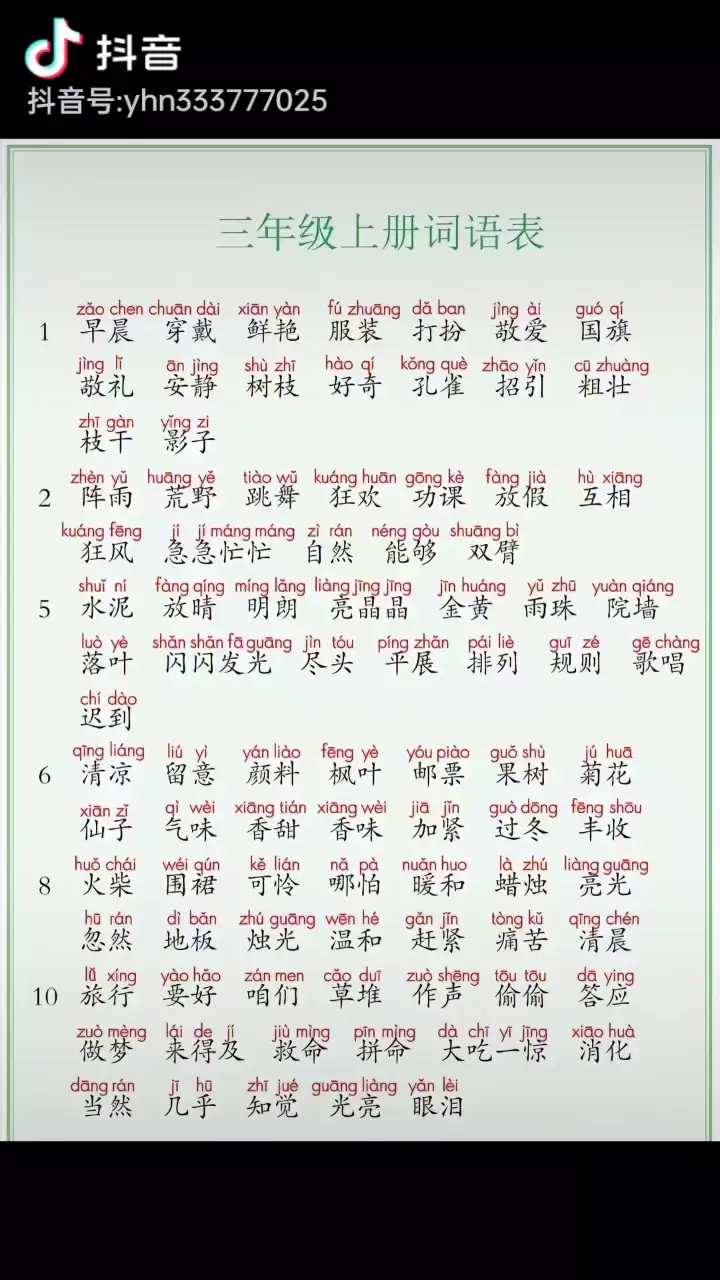 抖音
抖音号:yhn333777025
三年级上册词语表
zǎo chen chuān dài xiān yàn fú zhuāng dǎ ban jìng ài guó qí
1 早晨 穿戴 鲜艳 服装 打扮 敬爱 国旗
jìng lǐ ān jìng shù zhī hào qí kǒng què zhāo yǐn cū zhuàng
敬礼 安静 树枝 好奇 孔雀 招引 粗壮
zhī gàn yǐng zi
枝干 影子
zhèn yǔ huāng yě tiào wǔ kuáng huān gōng kè fàng jià hù xiāng
2 阵雨 荒野 跳舞 狂欢 功课 放假 互相
kuáng fēng jí jí máng máng zì rán néng gòu shuāng bì
狂风 急急忙忙 自然 能够 双臂
shuǐ ní fàng qíng míng lǎng liàng jīng jīng jīn huáng yǔ zhū yuàn qiáng
5 水泥 放晴 明朗 亮晶晶 金黄 雨珠 院墙
luò yè shǎn shǎn fā guāng jìn tóu píng zhǎn pái liè guī zé gē chàng
落叶 闪闪发光 尽头 平展 排列 规则 歌唱
chí dào
迟到
qīng liáng liú yì yán liào fēng yè yóu piào guǒ shù jú huā
6 清凉 留意 颜料 枫叶 邮票 果树 菊花
xiān zǐ qì wèi xiāng tián xiāng wèi jiā jǐn guò dōng fēng shōu
仙子 气味 香甜 香味 加紧 过冬 丰收
huǒ chái wéi qún kě lián nǎ pà nuǎn huo là zhú liàng guāng
8 火柴 围裙 可怜 哪怕 暖和 蜡烛 亮光
hū rán dì bǎn zhú guāng wēn hé gǎn jǐn tòng kǔ qīng chén
忽然 地板 烛光 温和 赶紧 痛苦 清晨
lǚ xíng yào hǎo zán men cǎo duī zuò shēng tōu tōu dā ying
10 旅行 要好 咱们 草堆 作声 偷偷 答应
zuò mèng lái de jí jiù mìng pīn mìng dà chī yī jīng xiāo huà
做梦 来得及 救命 拼命 大吃一惊 消化
dāng rán jī hū zhī jué guāng liàng yǎn lèi
当然 几乎 知觉 光亮 眼泪